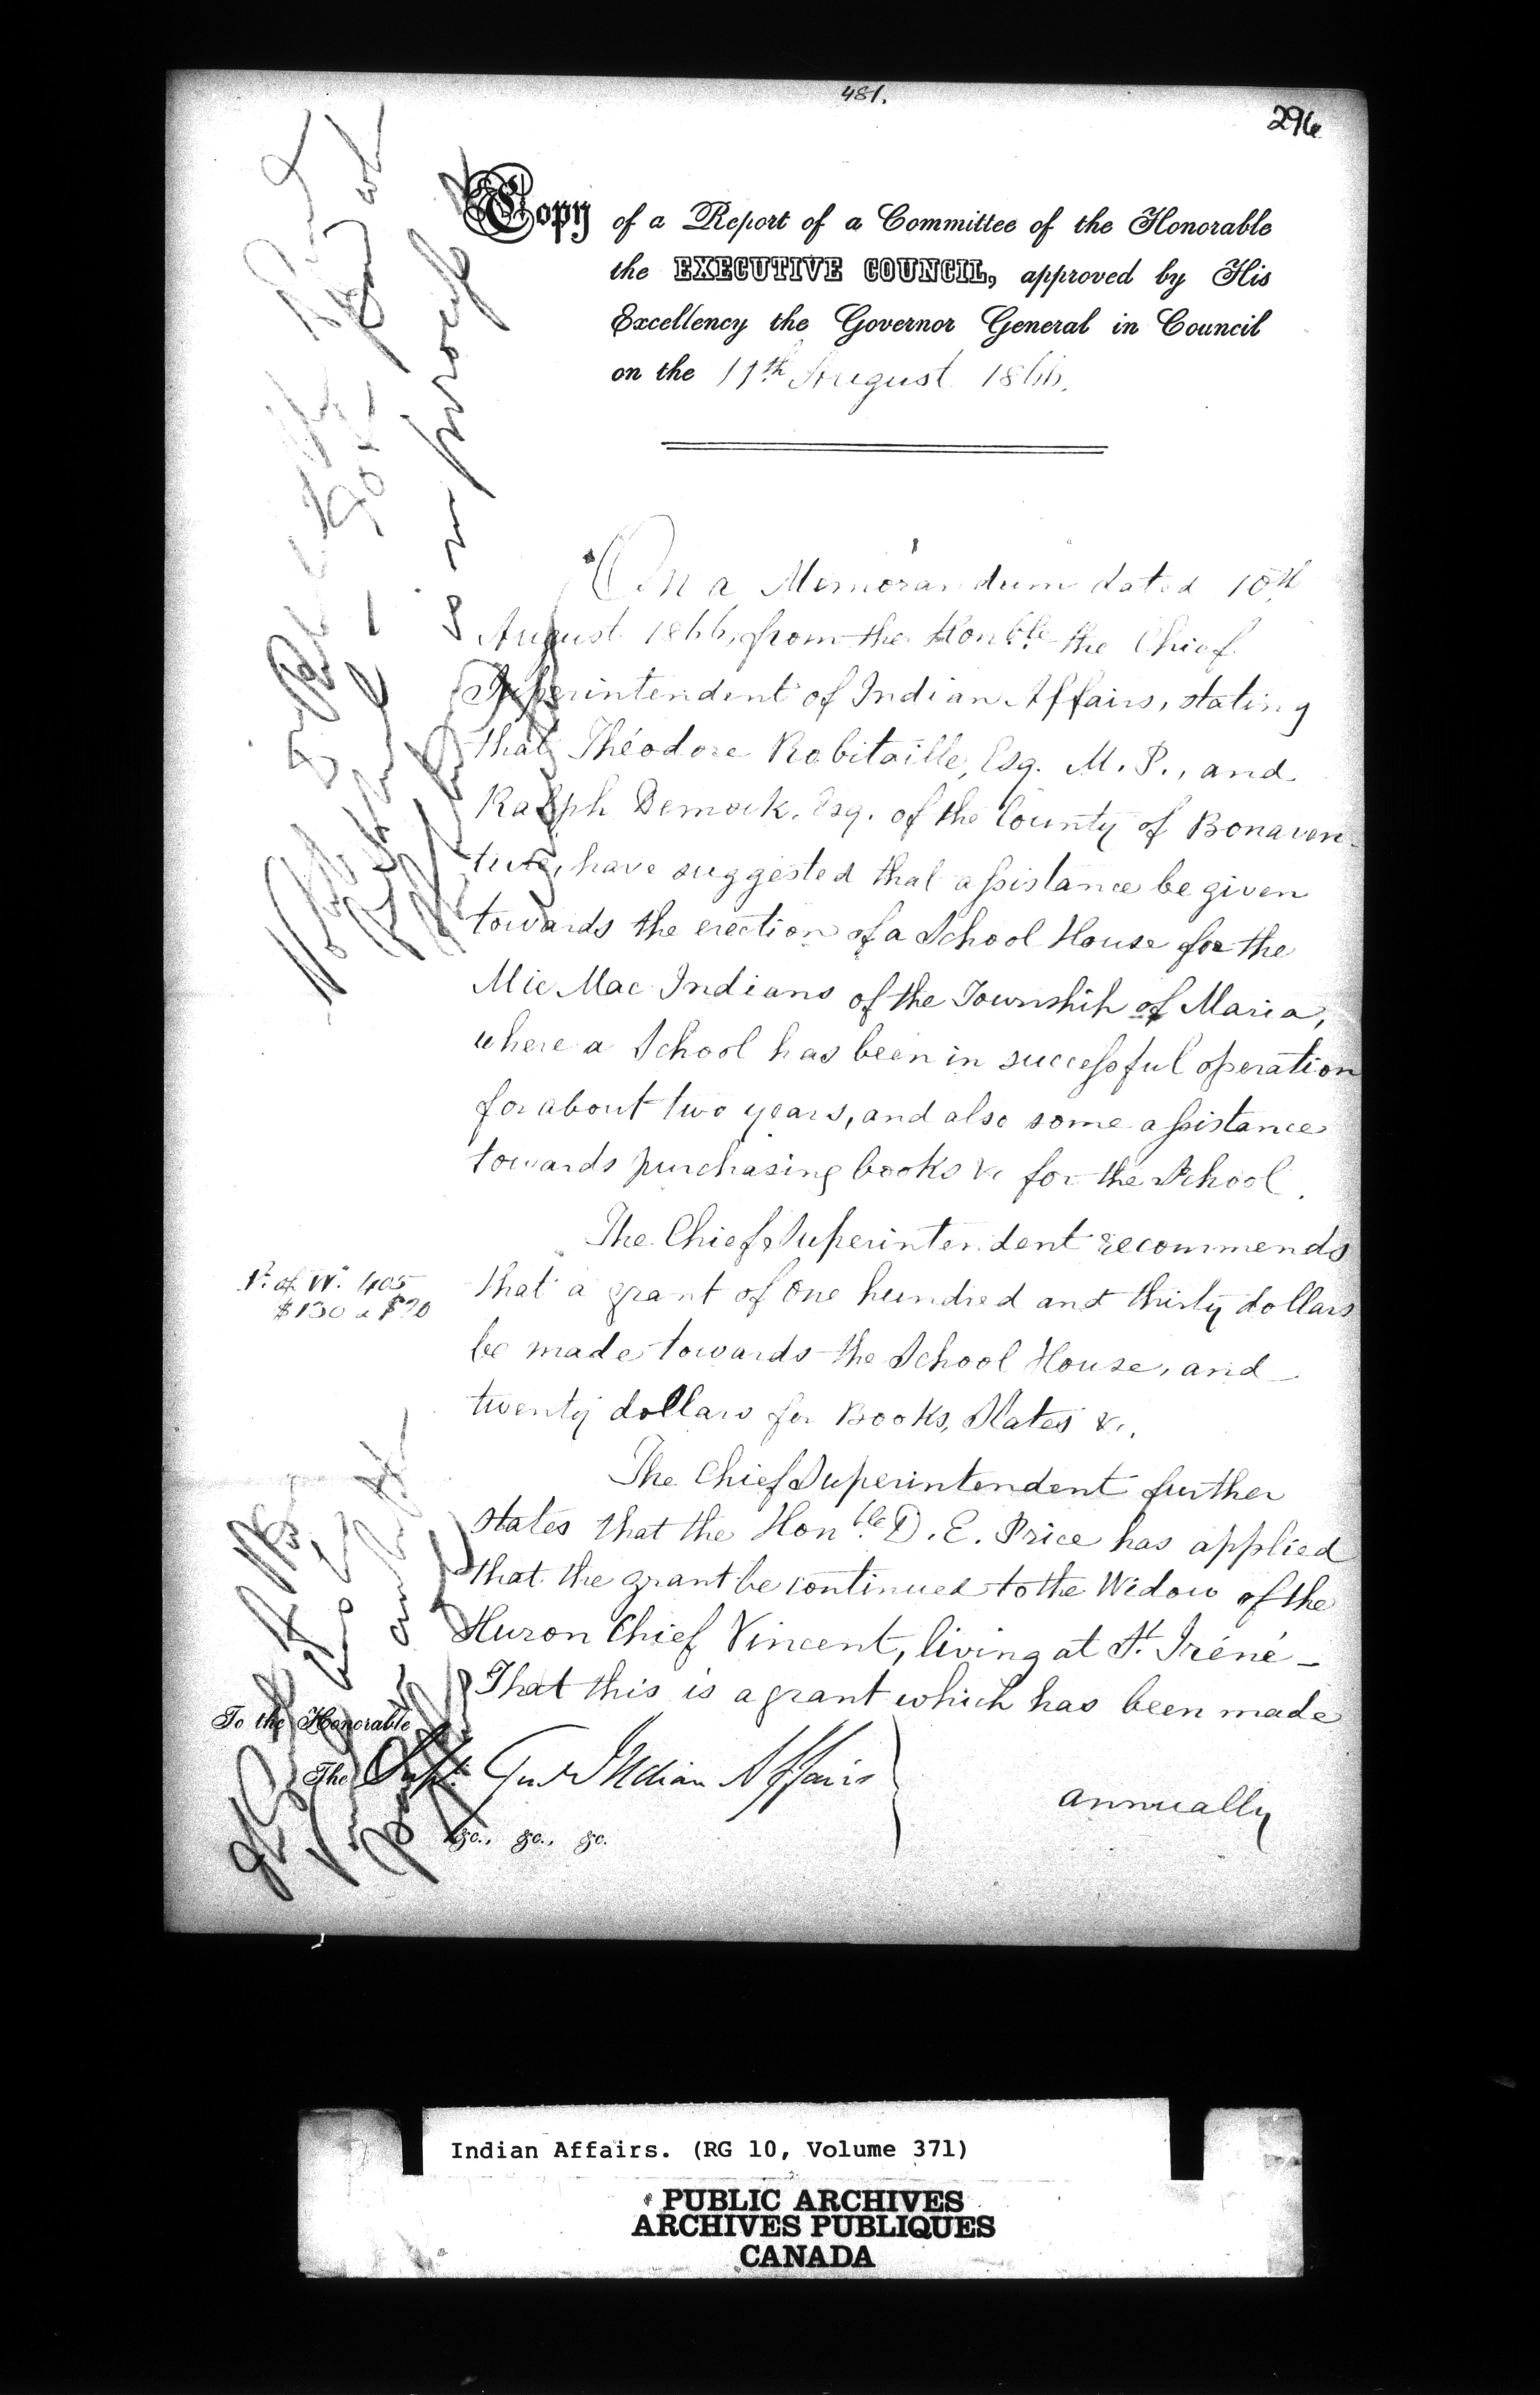 481.
296
Copy of a Report of a Committee of the Honorable
the EXECUTIVE COUNCIL, approved by His
Excellency the Governor General in Council
on the 11th August 1866.
On a Memorandum dated 10th
August 1866, from the Honble the Chief
Superintendent of Indian Affairs, stating
that Théodore Robitaille, Esq. M. P., and
Ralph Demock, Esq. of the County of Bonaven-
ture, have suggested that assistance be given
towards the erection of a School House for the
Mic Mac Indians of the Township of Maria,
where a School has been in successful operation
for about two years, and also some assistance
towards purchasing books &c for the School.
The Chief Superintendent recommends
that a grant of one hundred and thirty dollars
be made towards the School House, and
twenty dollars for Books, Slates &c.
405
$130 & $20
The Chief Superintendent further
states that the Honble D. E. Price has applied
that the grant be continued to the Widow of the
Huron Chief Vincent, living at St. Iréné –
That this is a grant which has been made
annually
To the Honorable
The Supt. Genl Indian Affairs
&c., &c., &c.
Indian Affairs. (RG 10, Volume 371)
PUBLIC ARCHIVES
ARCHIVES PUBLIQUES
CANADA